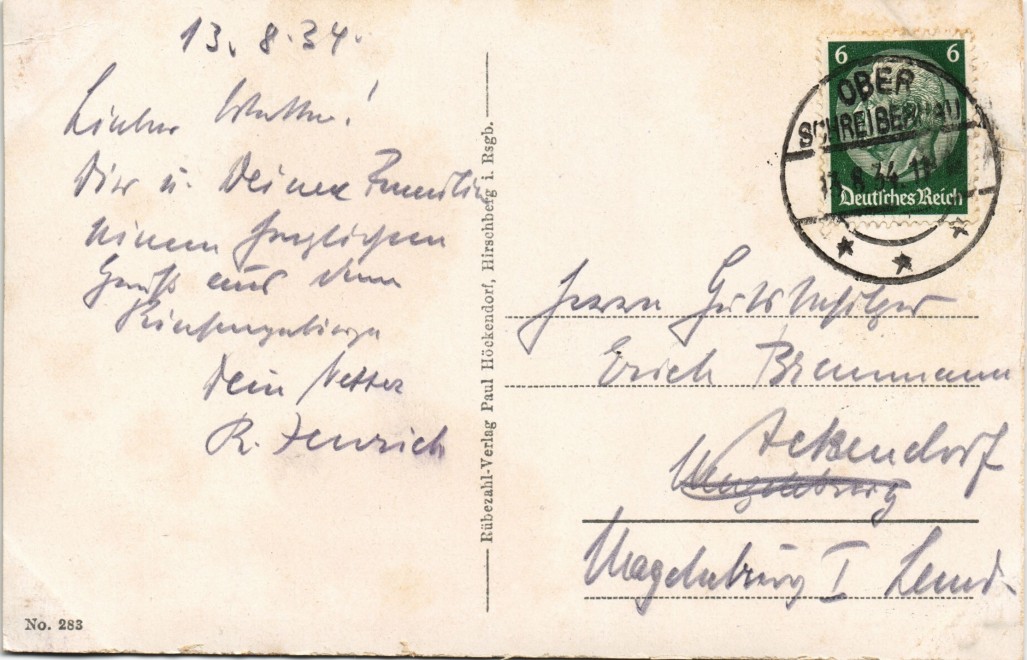 13. 8. 34.
Lieber Vetter!
Dir u. Deiner Familie
einen herzlichen
Gruß aus dem
Riesengebirge
Dein Vetter
R. Jenrich
Rübezahl-Verlag Paul Höckendorf, Hirschberg i. Rsgb.
No. 283
6 6
Deutsches Reich
OBER
SCHREIBERHAU
13.8.34.
Herrn Gutsbesitzer
Erich Brennmann
Ackendorf
Magdeburg
Magdeburg I Land.